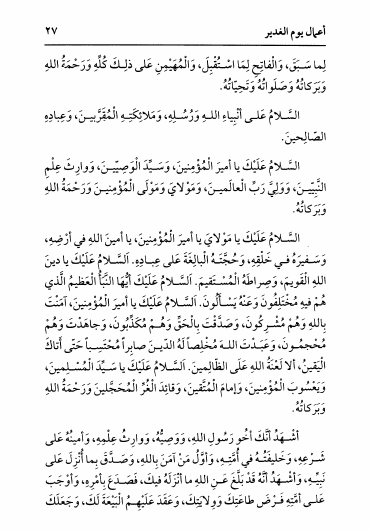 أعمال يوم الغدير ٢٧
لِما سَبَقَ، وَالْفاتِحِ لِمَا اسْتُقْبِلَ، وَالْمُهَيْمِنِ عَلى ذلِكَ كُلِّهِ وَرَحْمَةُ اللهِ
وَبَرَكاتُهُ وَصَلَواتُهُ وَتَحِيّاتُهُ.
السَّلامُ عَلى أَنْبِياءِ اللهِ وَرُسُلِهِ، وَمَلائِكَتِهِ الْمُقَرَّبينَ، وَعِبادِهِ
الصّالِحينَ.
السَّلامُ عَلَيْكَ يا أميرَ الْمُؤْمِنينَ، وَسَيِّدَ الْوَصِيّينَ، وَوارِثَ عِلْمِ
النَّبِيّينَ، وَوَلِيَّ رَبِّ الْعالَمينَ، وَمَوْلايَ وَمَوْلَى الْمُؤْمِنينَ وَرَحْمَةُ اللهِ
وَبَرَكاتُهُ.
السَّلامُ عَلَيْكَ يا مَوْلايَ يا أميرَ الْمُؤْمِنينَ، يا أمينَ اللهِ في أرْضِهِ،
وَسَفيرَهُ في خَلْقِهِ، وَحُجَّتَهُ الْبالِغَةَ عَلى عِبادِهِ. اَلسَّلامُ عَلَيْكَ يا دينَ
اللهِ الْقَويمَ، وَصِراطَهُ الْمُسْتَقيمَ. اَلسَّلامُ عَلَيْكَ أيُّهَا النَّبَأُ الْعَظيمُ الَّذي
هُمْ فيهِ مُخْتَلِفُونَ وَعَنْهُ يَسْأَلُونَ. اَلسَّلامُ عَلَيْكَ يا أميرَ الْمُؤْمِنينَ، آمَنْتَ
بِاللهِ وَهُمْ مُشْرِكُونَ، وَصَدَّقْتَ بِالْحَقِّ وَهُمْ مُكَذِّبُونَ، وَجاهَدْتَ وَهُمْ
مُحْجِمُونَ، وَعَبَدْتَ اللهَ مُخْلِصاً لَهُ الدّينَ صابِراً مُحْتَسِباً حَتّى أتاكَ
الْيَقينُ، ألا لَعْنَةُ اللهِ عَلَى الظّالِمينَ. اَلسَّلامُ عَلَيْكَ يا سَيِّدَ الْمُسْلِمينَ،
وَيَعْسُوبَ الْمُؤْمِنينَ، وَإمامَ الْمُتَّقينَ، وَقائِدَ الْغُرِّ الْمُحَجَّلينَ وَرَحْمَةُ اللهِ
وَبَرَكاتُهُ.
أشْهَدُ أنَّكَ أخُو رَسُولِ اللهِ، وَوَصِيُّهُ، وَوارِثُ عِلْمِهِ، وَأمينُهُ عَلى
شَرْعِهِ، وَخَليفَتُهُ في أُمَّتِهِ، وَأوَّلُ مَنْ آمَنَ بِاللهِ، وَصَدَّقَ بِما أُنْزِلَ عَلى
نَبِيِّهِ، وَأشْهَدُ أنَّهُ قَدْ بَلَّغَ عَنِ اللهِ ما أنْزَلَهُ فيكَ، فَصَدَعَ بِأمْرِهِ، وَأوْجَبَ
عَلى أُمَّتِهِ فَرْضَ طاعَتِكَ وَوِلايَتِكَ، وَعَقَدَ عَلَيْهِمُ الْبَيْعَةَ لَكَ، وَجَعَلَكَ